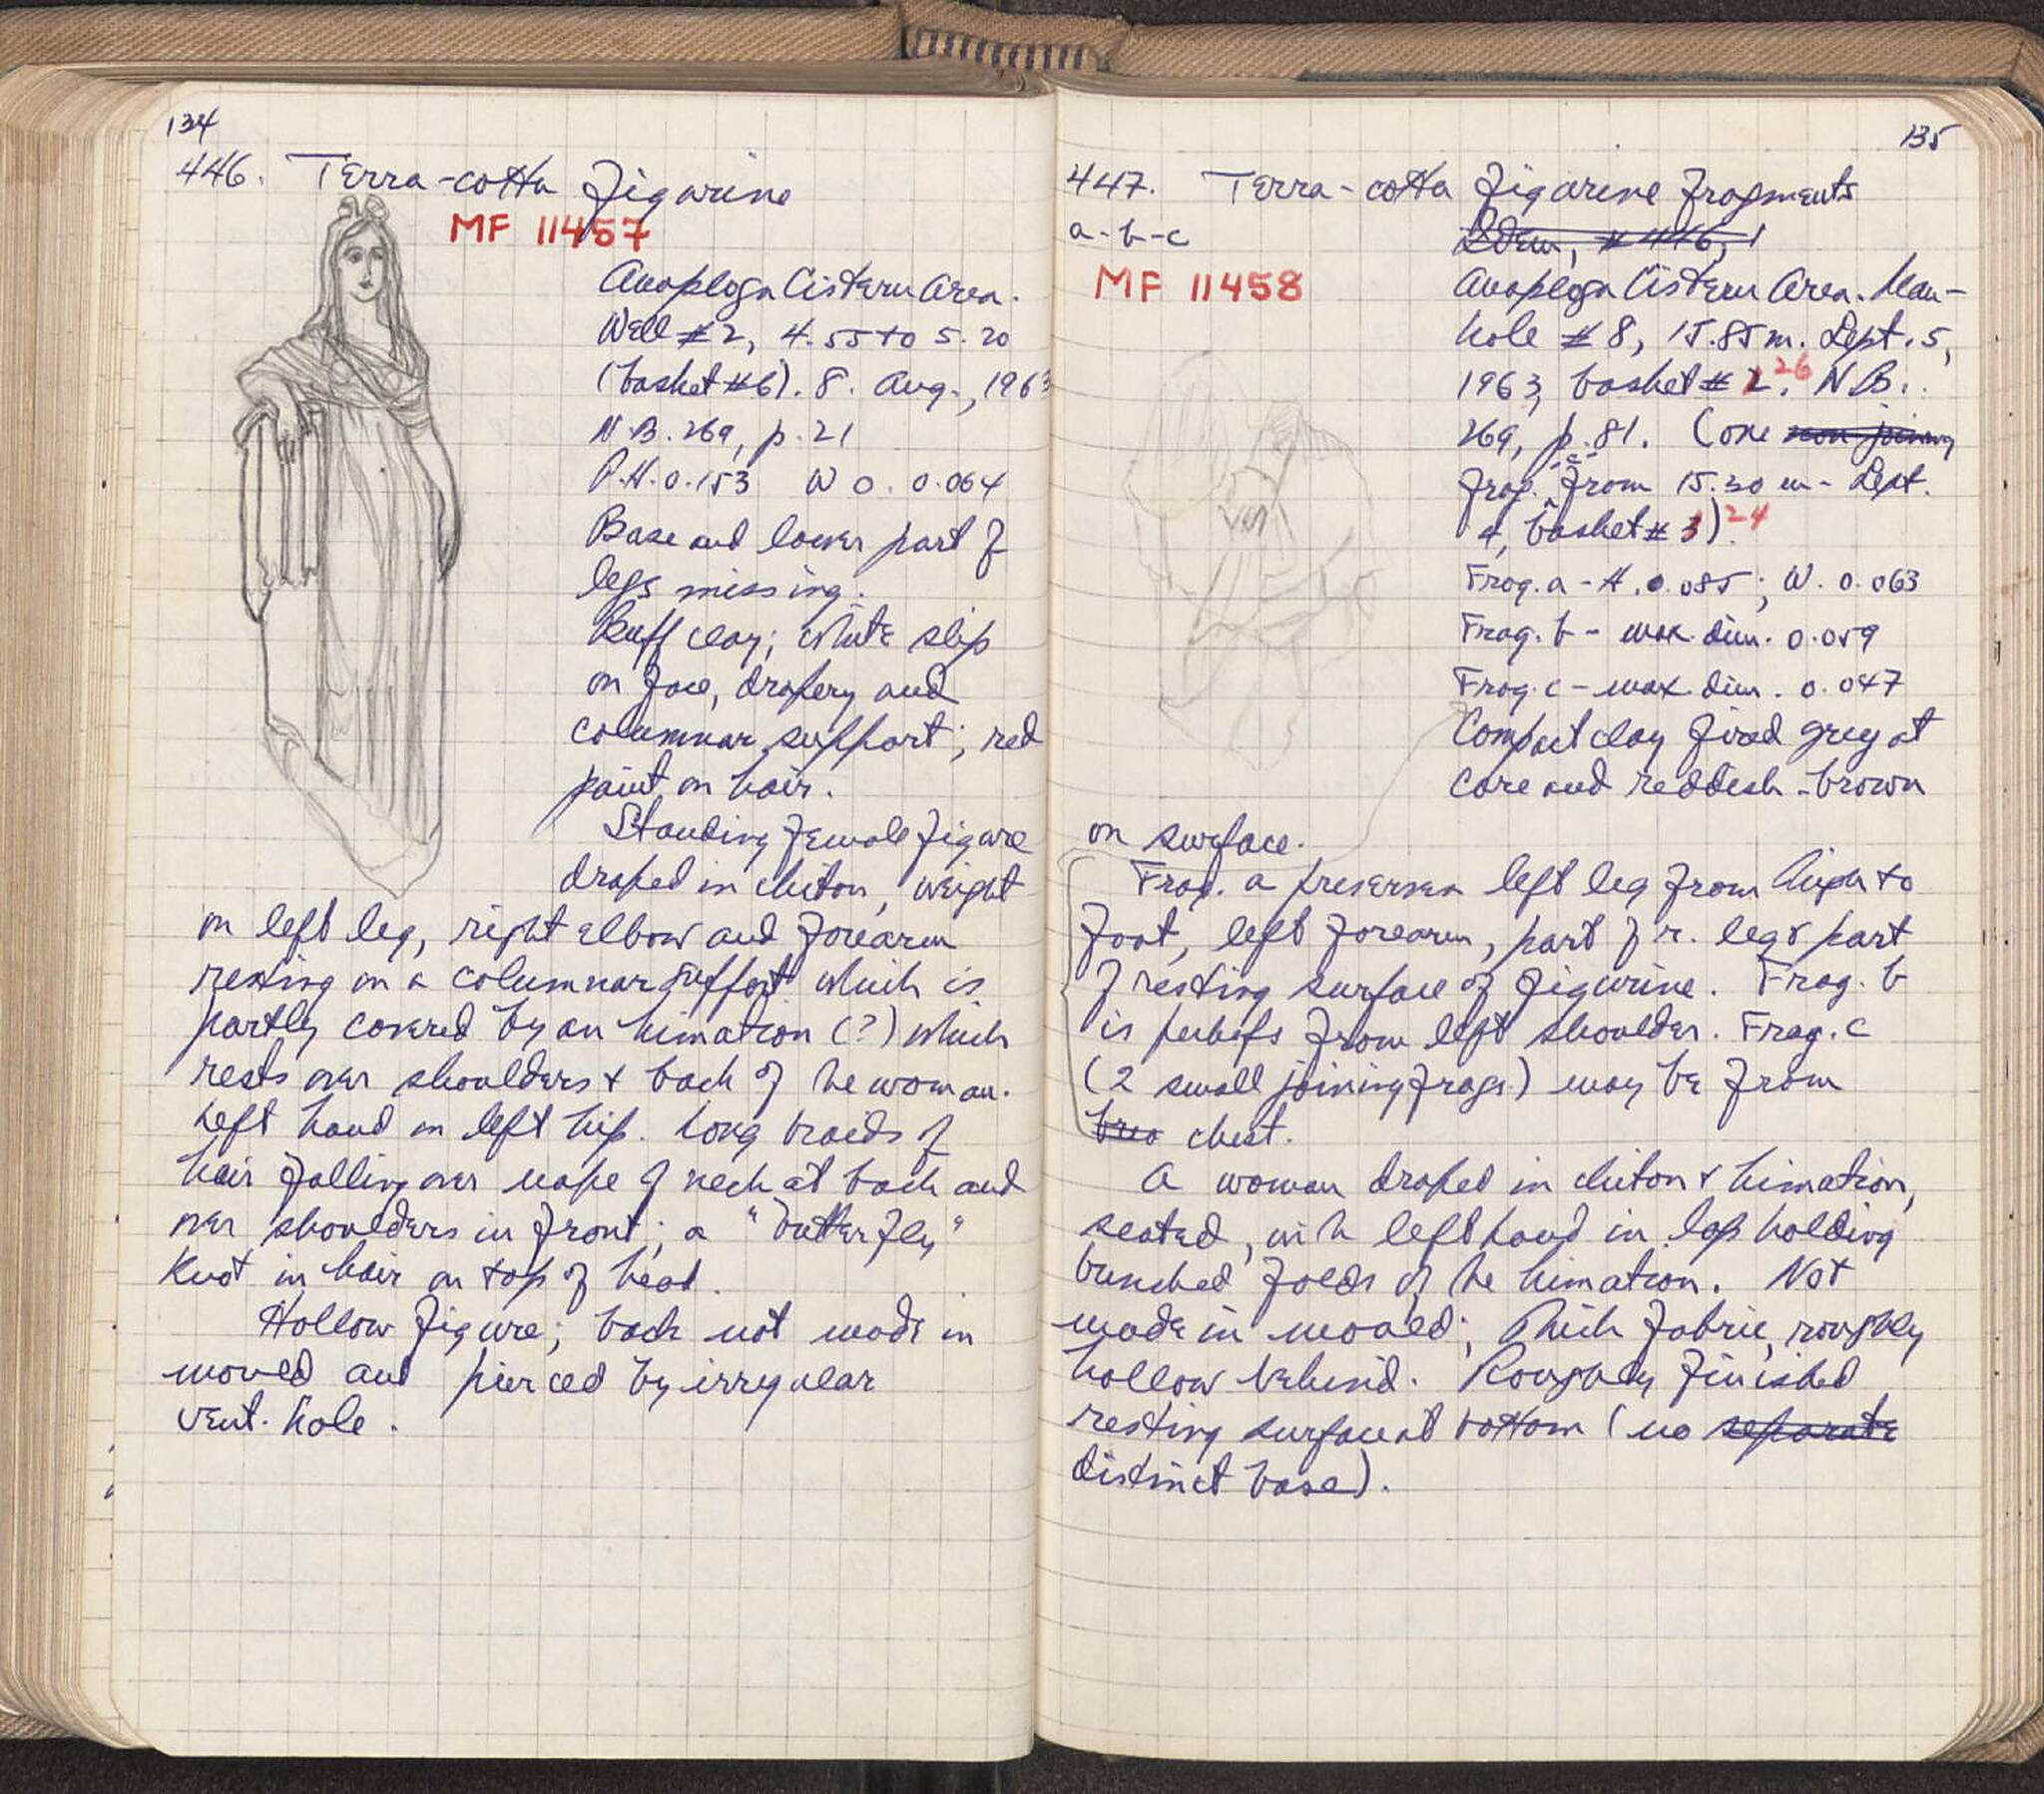 134
446. Terra-cotta figurine
MF 11457
Anaploga Cistern Area.
Well #2, 4.55 to 5.20
(basket #6). 8. Aug., 1963
N.B. 269, p. 21
P.H. 0.153 W 0. 0.064
Base and lower part of
legs missing.
Buff clay; white slip
on face, drapery and
columnar support; red
paint on hair.
Standing female figure
draped in chiton, weight
on left leg, right elbow and forearm
resting on a columnar support which is
partly covered by an himation (?) which
rests over shoulders & back of he woman.
Left hand on left hip. Long braids of
hair falling over nape of neck at back and
over shoulders in front; a "butterfly"
knot in hair on top of head.
Hollow figure; back not made in
mould and pierced by irregular
vent-hole.
135
447. Terra-cotta figurine fragments
a-b-c
Idem, #446,
MF 11458
Anaploga Cistern Area. Man-
hole #8, 15.85m. Sept. 5,
1963, basket # 2. 26 N.B.
269, p. 81. (one non joining
frag. -c- from 15.30 m - Sept.
4, basket # 3) 24
Frag. a - H. 0.085; W. 0.063
Frag. b - max. dim. 0.059
Frag. c - max. dim. 0.047
Compact clay fired grey at
core and reddish-brown
on surface.
Frag. a preserves left leg from high to
foot, left forearm, part of r. leg & part
of resting surface of figurine. Frag. b
is perhaps from left shoulder. Frag. c
(2 small joining frags.) may be from
brea chest.
A woman draped in chiton & himation,
seated, with left hand in lap holding
bunched folds of he himation. Not
made in mould; thick fabric, roughly
hollow behind. Roughly finished
resting surface at bottom (no separate
distinct base).